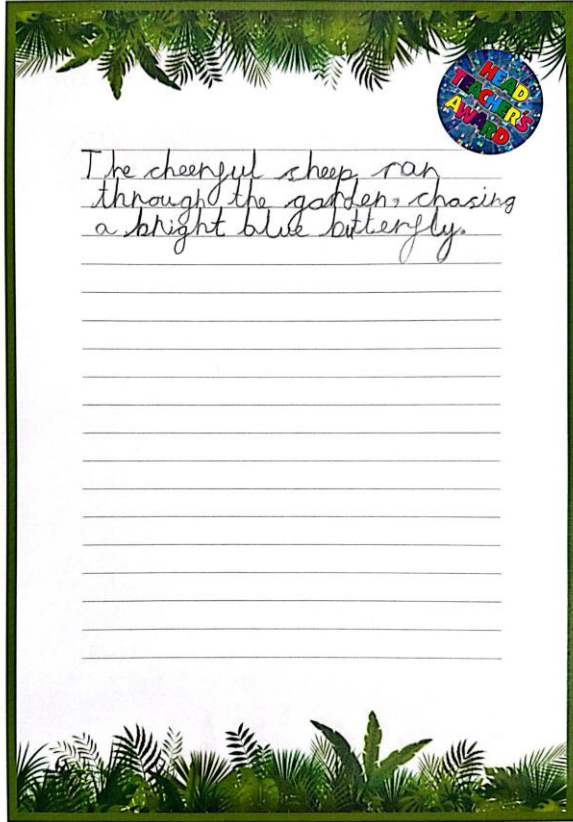 HEAD
TEACHER'S
AWARD
The cheerful sheep ran
through the garden, chasing
a bright blue butterfly.